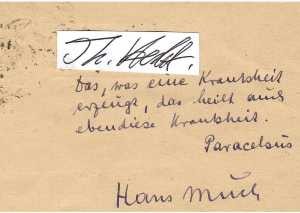 Th.
Das, was eine Krankheit
erzeugt, das heilt auch
ebendiese Krankheit.
Paracelsus
Hans Much